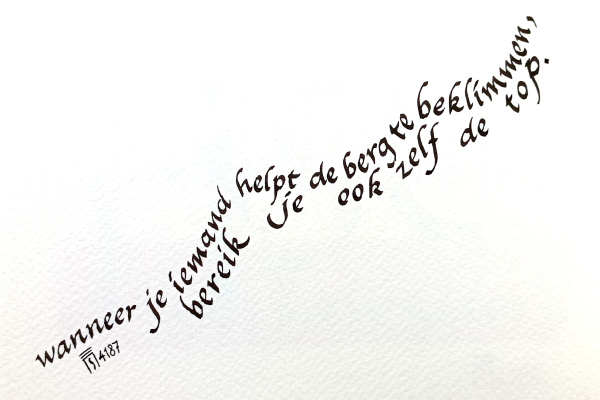 wanneer je iemand helpt de berg te beklimmen,
bereik je ook zelf de top.
4187